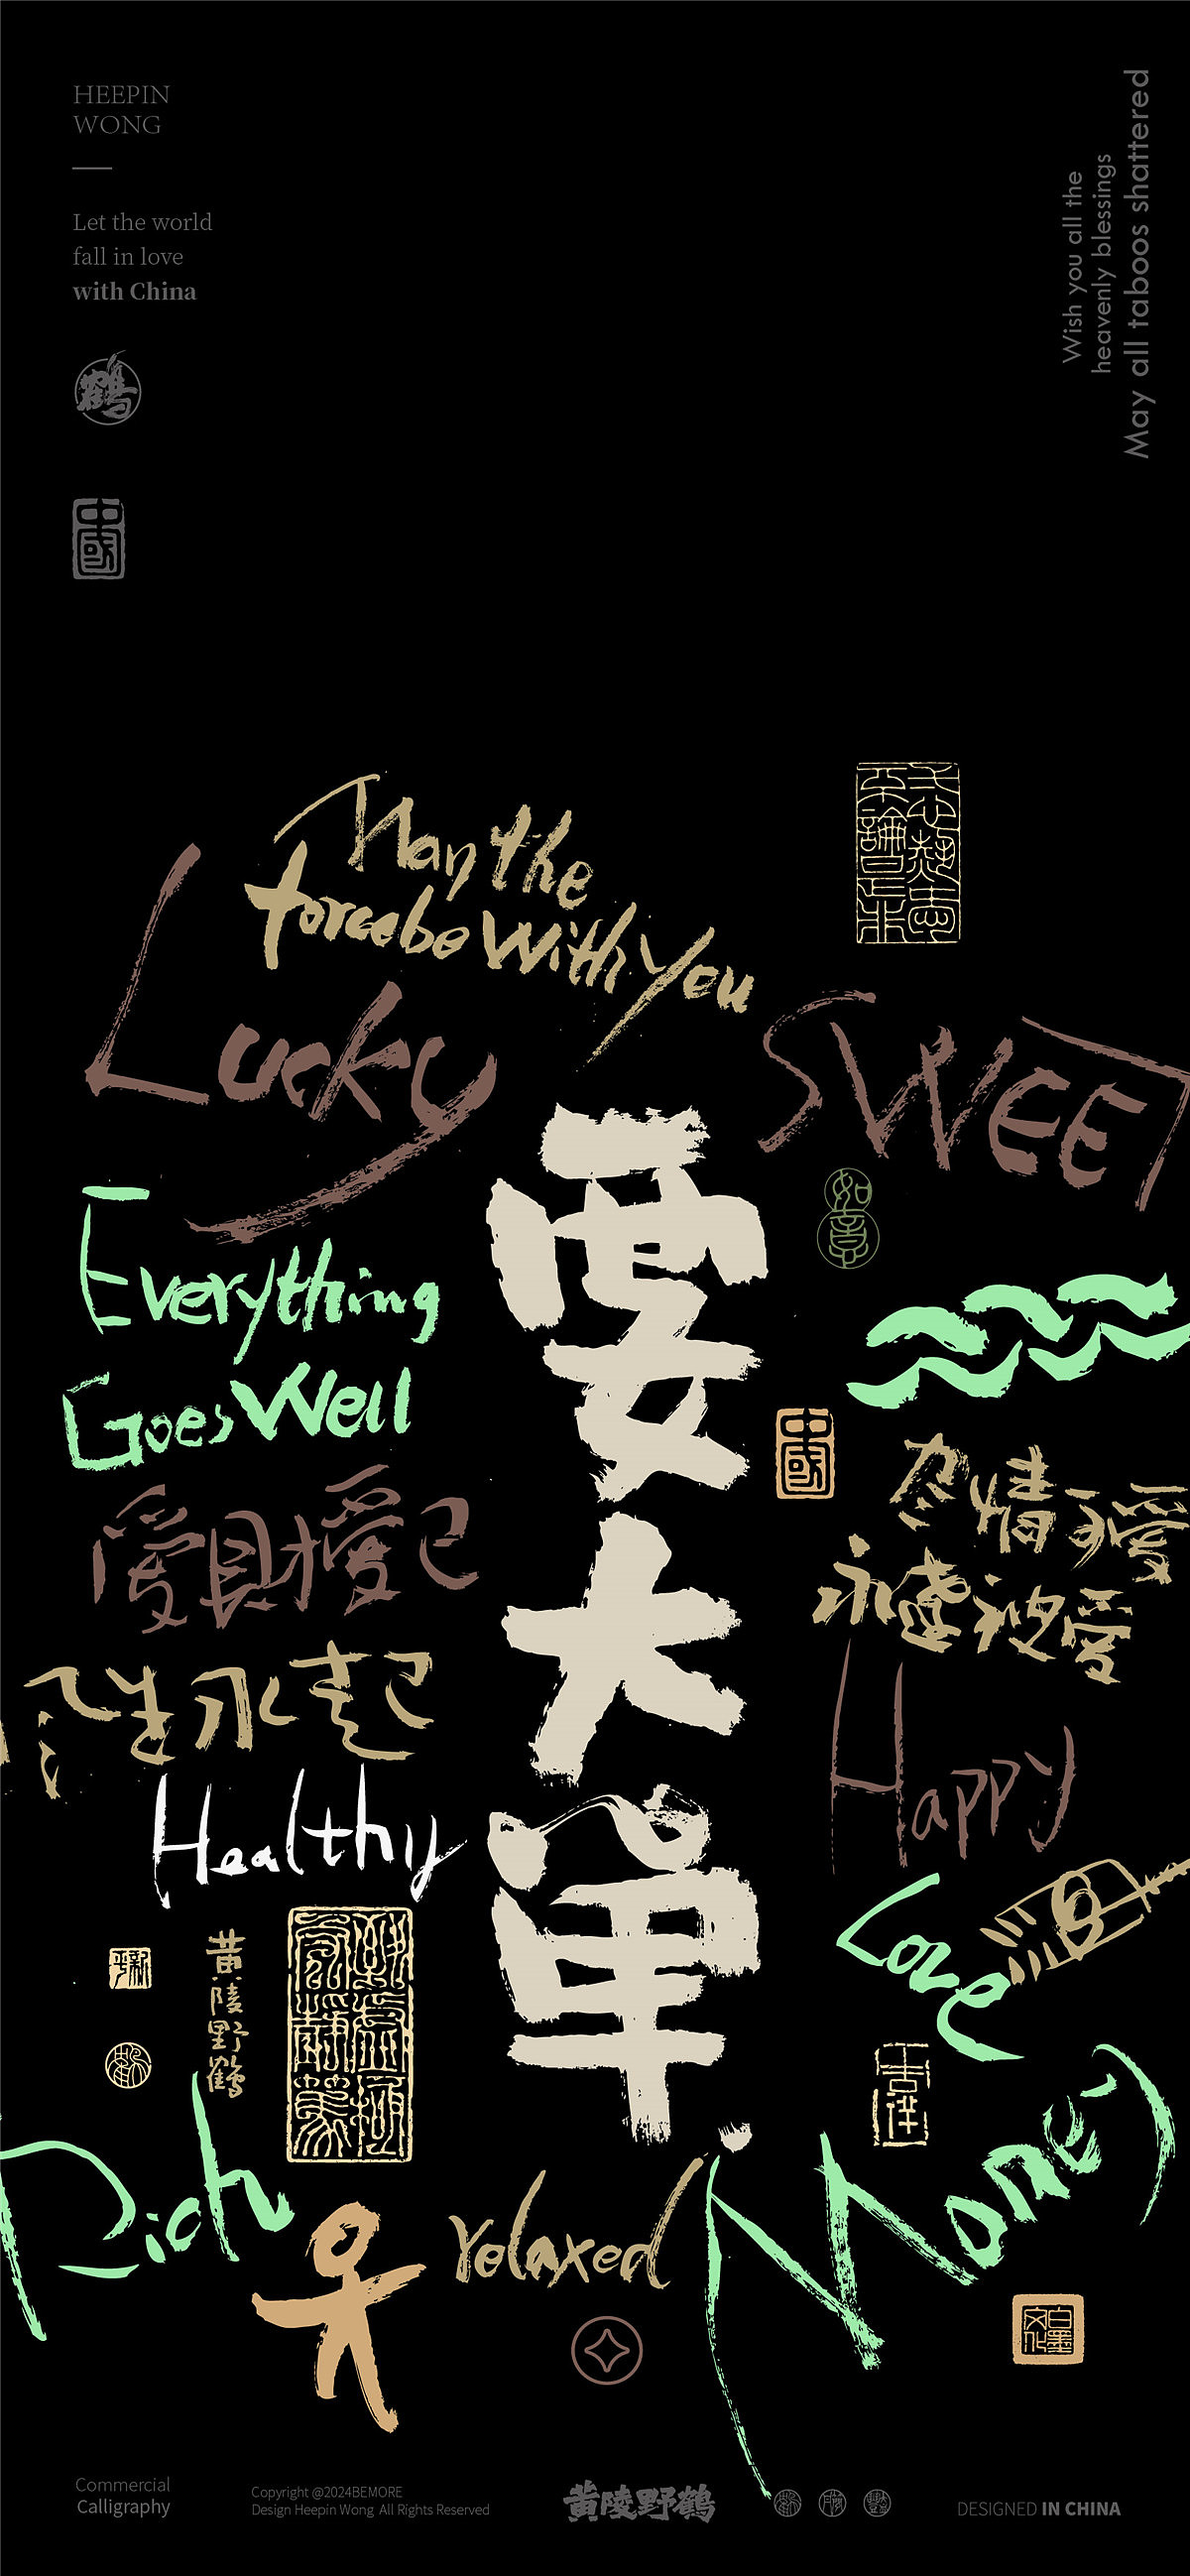 HEEPIN
WONG
Let the world
fall in love
with China
鶴
中國
Wish you all the
heavenly blessings
May all taboos shattered
May the
force be With You
Lucky
SWEET
如意
Everything
Goes Well
耍大單
中國
尽情可愛
永遠被愛
愛財愛己
風生水起
Happy
Healthy
Love
黄陵野鶴
吉祥
Rich
relaxed
Money
白墨文化
Commercial
Calligraphy
Copyright @2024BEMORE
Design Heepin Wong All Rights Reserved
黄陵野鶴
DESIGNED IN CHINA